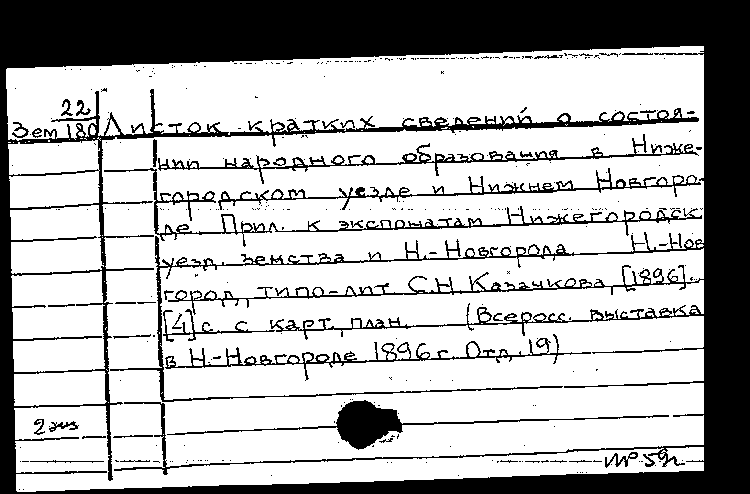 22
Зем 180 Листок кратких сведений о состоя-
нии народного образования в Ниже-
городском уезде и Нижнем Новгоро-
де. Прил. к экспонатам Нижегородск
уезд. земства и Н.-Новгорода. Н.-Нов
город, типо-лит С.Н Казачкова, [1896].
[4] с. с карт, план. (Всеросс. выставка
в Н.-Новгороде 1896 г. Отд. 19)
2 экз